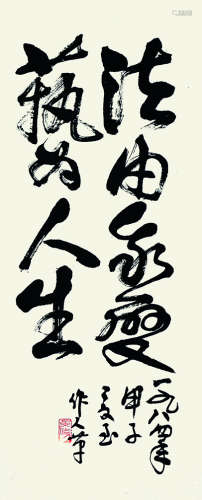 法由我變
藝为人生
一九八四年
甲子
夏至
作人